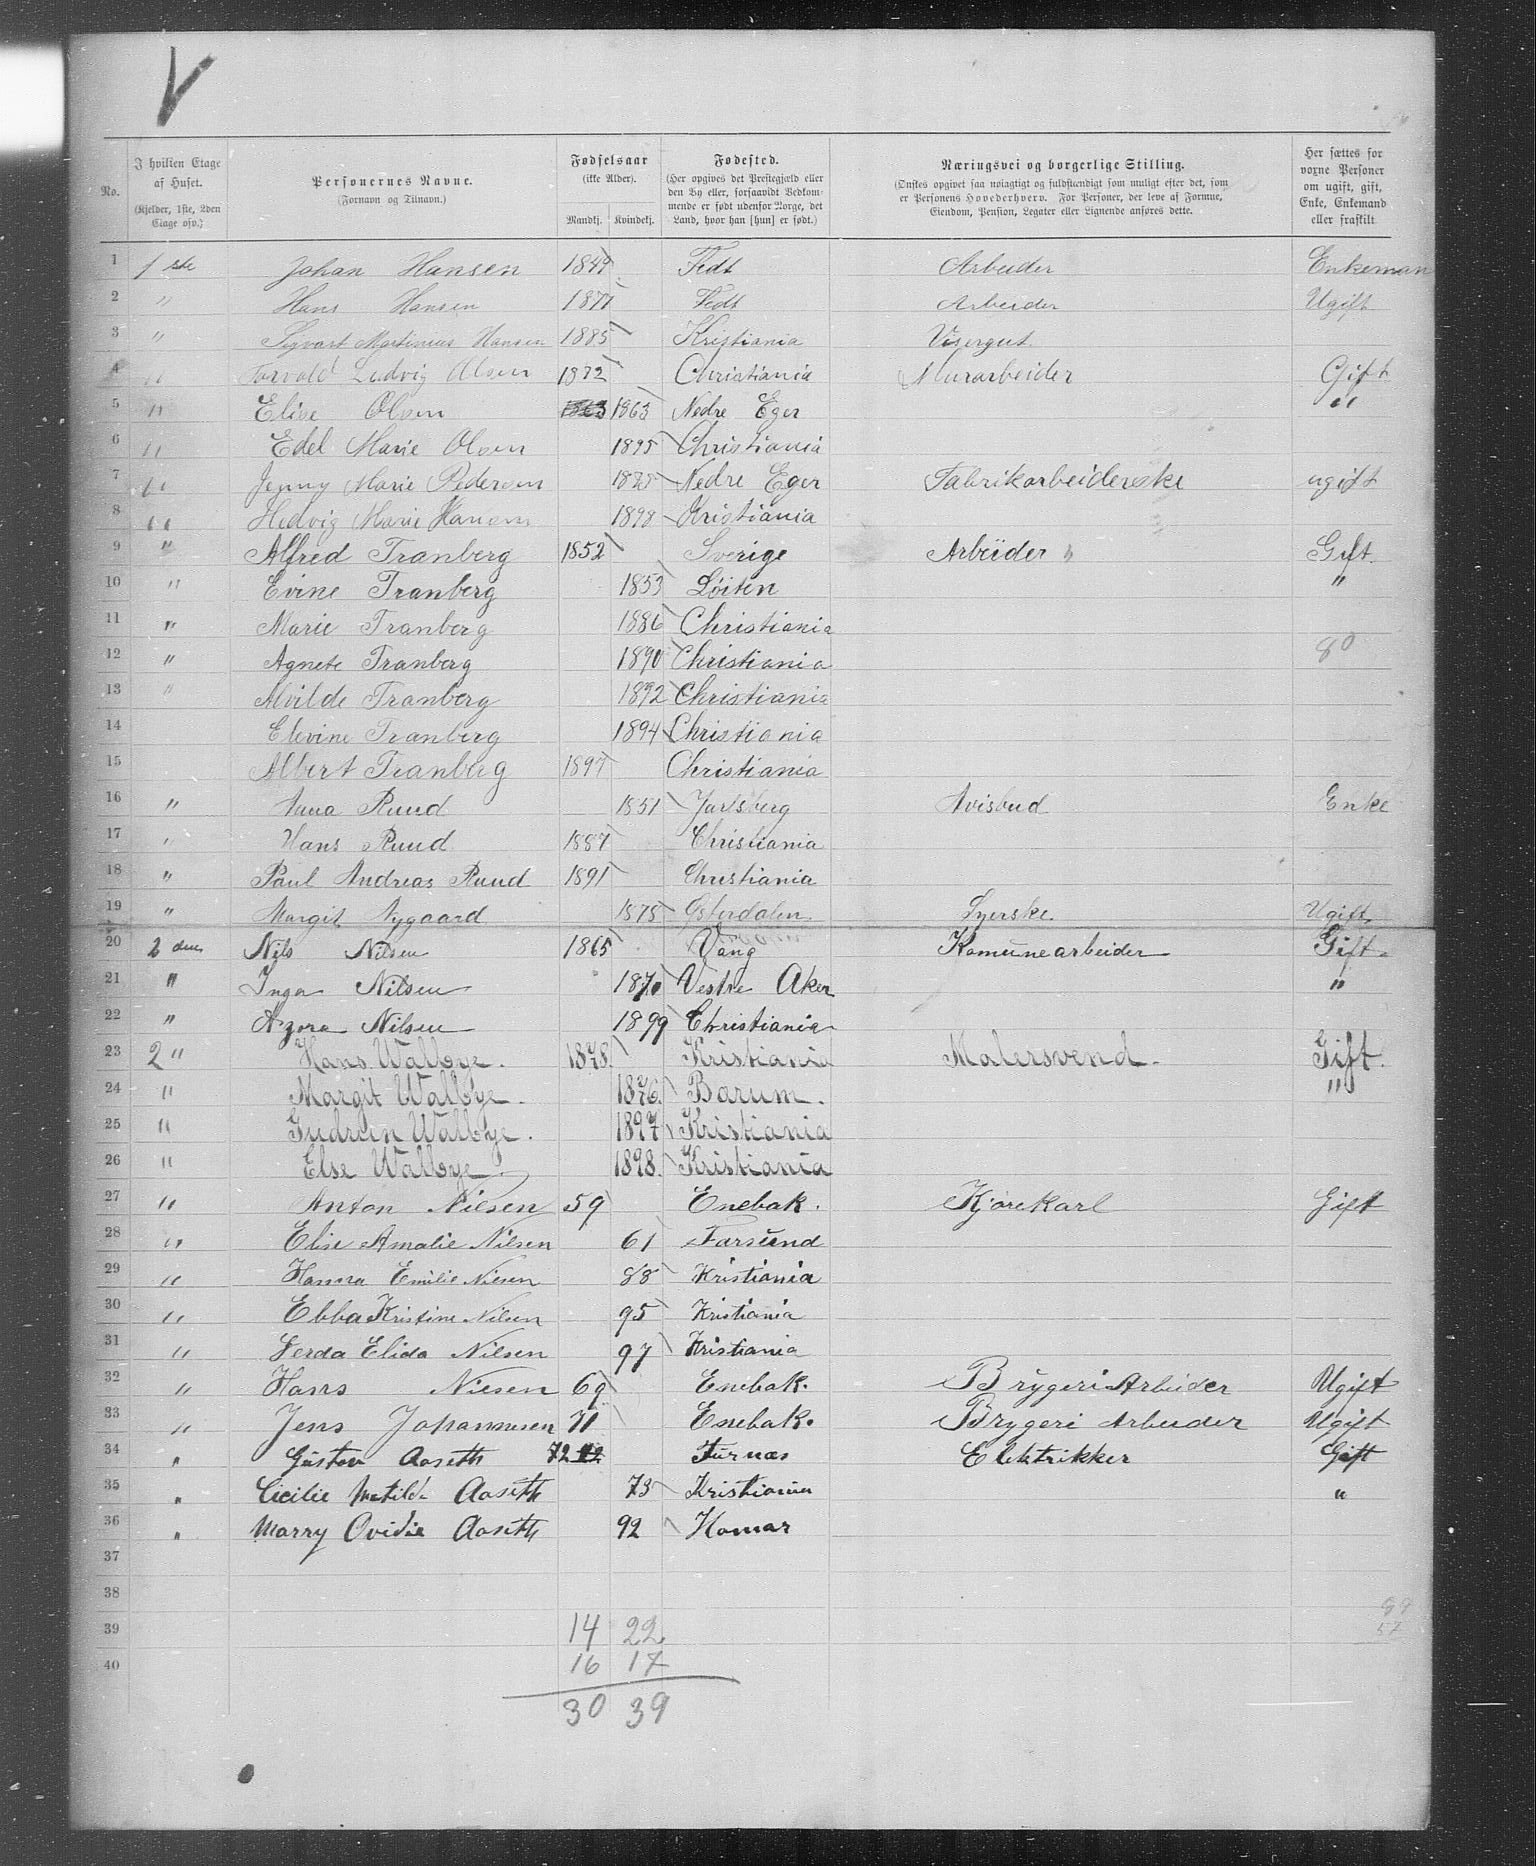 V
No.
I hvilken Etage af Huset. (Kjelder, 1ste, 2den Etage osv.)
Personernes Navne. (Fornavn og Tilnavn.)
Fødselsaar (ikke Alder). Mandkj. Kvindekj.
Fødested. (Her opgives det Prestegjæld eller den By eller, forsaavidt Vedkommende er født udenfor Norge, det Land, hvor han [hun] er født.)
Næringsvei og borgerlige Stilling. (Ønskes opgivet saa nøiagtigt og fuldstændigt som muligt efter det, som er Personens Hovederhverv. For Personer, der leve af Formue, Eiendom, Pension, Legater eller Lignende anføres dette.
Her sættes for voxne Personer om ugift, gift, Enke, Enkemand eller fraskilt.
1 1 ste Johan Hansen 1849 Fedt Arbeider Enkeman
2 " Hans Hansen 1877 Fedt Arbeider Ugift
3 " Sigvart Martinius Hansen 1885 Kristiania Visergut
4 " Torvald Ludvig Olsen 1872 Christiania Murarbeider Gift
5 " Elise Olsen 1863 1863 Nedre Eger "
6 " Edel Marie Olsen 1895 Christiania
7 " Jenny Marie Pedersen 1875 Nedre Eger Fabrikarbeiderske ugift
8 " Hedvig Marie Hansen 1898 Kristiania
9 " Alfred Tranberg 1852 Sverige Arbeider Gift
10 " Evine Tranberg 1853 Løiten "
11 " Marie Tranberg 1886 Christiania
12 " Agnete Tranberg 1890 Christiania 80
13 " Alvilde Tranberg 1892 Christiania
14 Elevine Tranberg 1894 Christiania
15 Albert Tranberg 1897 Christiania
16 " Anna Ruud 1851 Jarlsberg Avisbud Enke
17 " Hans Ruud 1887 Christiania
18 " Paul Andreas Ruud 1891 Christiania
19 " Margit Nygaard 1878 Østerdalen Syerske Ugift
20 2 den Nils Nilsen 1865 Vang Komunearbeider Gift
21 " Inga Nilsen 1870 Vestre Aker "
22 " Azora Nilsen 1899 Christiania
23 2 " Hans Walbye. 1878. Kristiania Malersvend. Gift.
24 " Margit Walbye. 1876. Barum. "
25 " Gudrun Walbye. 1897 Kristiania
26 " Else Walbye. 1898. Kristiania
27 " Anton Nielsen 59 Enebak. Kjørekarl Gift
28 " Elise Amalie Nilsen 61 Farsund
29 " Hanna Emilie Nielsen 88 Kristiania
30 " Ebba Kristine Nilsen 95 Kristiania
31 " Gerda Elida Nilsen 97 Kristiania
32 " Hans Nielsen 69 Enebak. Bryggeri Arbeider Ugift
33 " Jens Johannesen 71 Enebak. Bryggeri Arbeider Ugift
34 " Gustav Aaseth 72 Furnæs Elektrikker Gift
35 " Cicilie Matilde Aaseth 73 Kristiania "
36 " Marry Ovidie Aaseth 92 Hamar
37
38
39 14 22
40 16 17
30 39
89
57